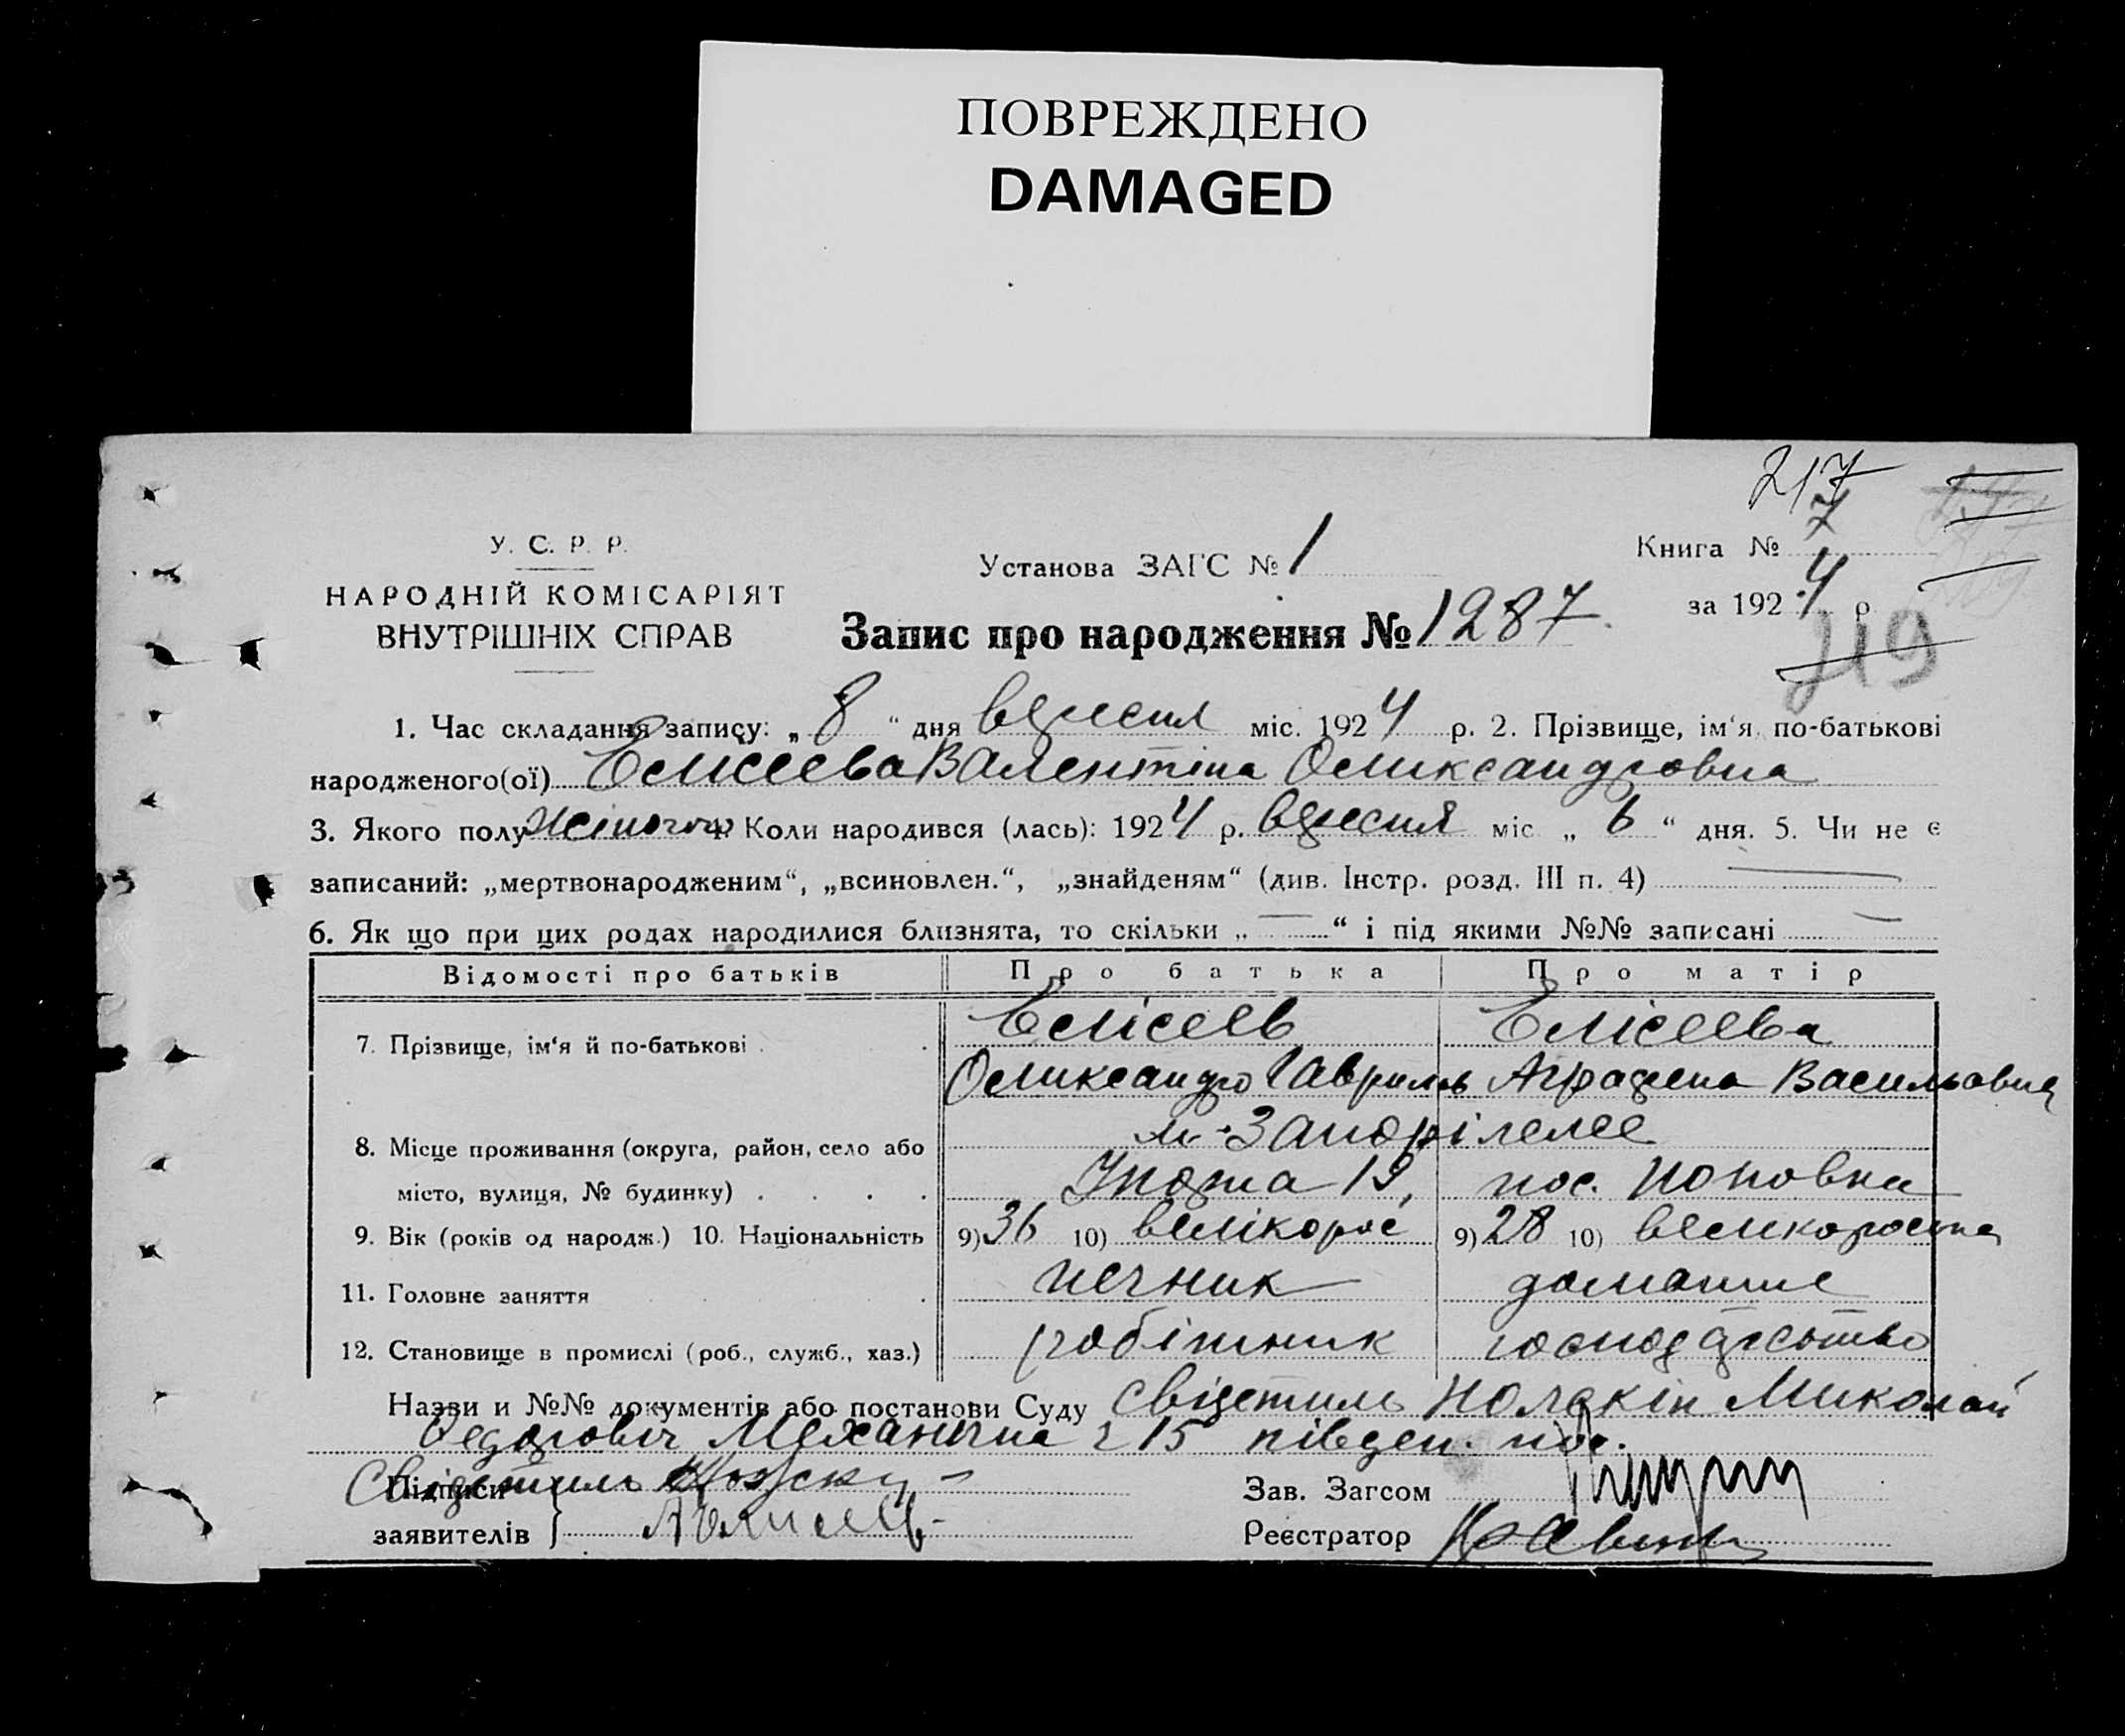 ПОВРЕЖДЕНО
DAMAGED
217
У. С. Р. Р.
НАРОДНІЙ КОМІСАРІЯТ
ВНУТРІШНІХ СПРАВ
Установа ЗАГС № 1
Книга № 7
за 1924 р
Запис про народження № 1287.
219
1. Час складання запису: „ 8 “ дня вересня міс. 1924 р. 2. Прізвище, ім‘я по-батькові
народженого(ої) Елисеева Валентіна Олександровна
3. Якого полу жіночого 4. Коли народився (лась): 1924 р. вересня міс „ 6 “ дня. 5. Чи не є
записаний: „мертвонародженим“, „всиновлен.“, „знайденям“ (див. Інстр. розд. III п. 4)
6. Як що при цих родах народилися близнята, то скільки „ — “ і під якими №№ записані —
Відомості про батьків Про батька Про матір
7. Прізвище, ім‘я й по-батькові . . Елісеев Елісеева
Олександр Гаврилов Аграфена Васильовна
8. Місце проживання (округа, район, село або
місто, вулиця, № будинку) . . . . 19, пос.
9. Вік (років од народж.) 10. Національність 9) 36 10) велікорос 9) 28 10) великороска
11. Головне заняття . печник домашне
12. Становище в промислі (роб., служб., хаз.) робітник господарство
Назви и №№ документів або постанови Суду Свідетиль Миколай
Федорович 15 півден. пос.
Підписи Свидетиль
заявителів }
Зав. Загсом
Реєстратор